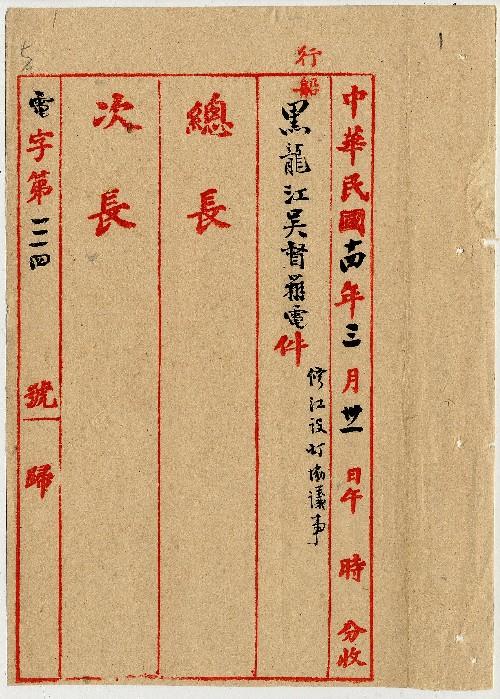 1
中華民國十四年三月卅一日午時分收
行船
黑龍江吳督辦電件
修江設灯協議事
總長
次長
電字第一二四號歸